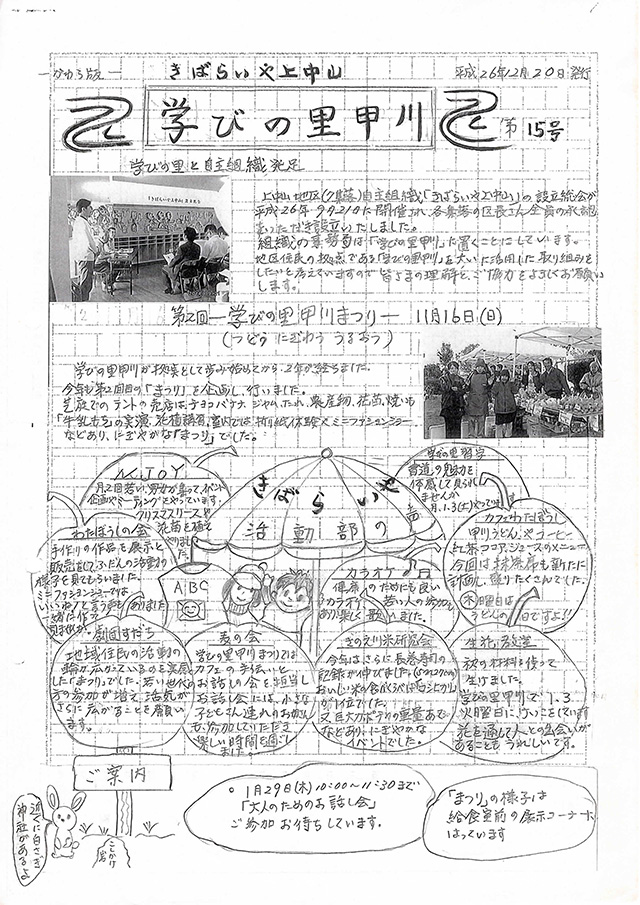 ーかわら版ー
きばらいや上中山
平成26年12月20日発行
学びの里甲川
第15号
学びの里と自主組織発足
上中山地区
自主組織「きばらいや上中山」の設立総会が
平成26年9月21日に開催され、各集落の区長さん全員の承認
をいただき設立いたしました。
組織の事務局は「学びの里甲川」に置くことにしています。
地区住民の拠点である「学びの里甲川」を大いに活用した取り組みを
したいと考えていますので皆さまの理解と、ご協力をよろしくお願い
します。
第2回ー学びの里甲川まつりー 11月16日(日)
(つどう にぎわう うるおう)
学びの里甲川が拠点として歩み始めてから、2年が経ちました。
今年も第2回目の「まつり」を企画し、行いました。
芝庭でのテントの売店は、チョコバナナ、ジャム、たれ、農産物、花苗、焼いも
などあり、にぎやかな「まつり」でした。
きばらいや
活動部の
N.JOY
月2回若い男女が集ってイベント
企画やミーティングをやっています。
クリスマスリースや
花苗を植え
学びの里習字
書道の魅力を
体感して見られ
ませんか
月、1.3(土)やってます
わたぼうしの会
手作りの作品を展示と
販売をして、ふだんの活動の
様子を見てもらいました。
ミニファッションショーでは
カフェわたぼうし
甲川うどん、やコーヒー
紅茶ココア、ジュースのメニュー
今回は抹茶席も新たに
計画し、盛りだくさんでした。
木曜日は
うどんの日ですよ!!
ABC
カラオケ
健康のためにも良い
カラオケ、若い人の参加も
あり楽しく歌いました。
劇団すだち
地域住民の活動の
輪が広がっているのを実感
した「まつり」でした。若い世代の
方の参加が増え、活気が
さらに広がることを願い
ます。
麦の会
学びの里甲川まつりでは
カフェの手伝いと
お話しの会を担当し
お話し会には、小さな
子どもさん連れのお母さん
も、参加していただき
楽しい時間を過ごし
ました。
きのえ川米研究会
今年はさらに長巻寿司の
記録が伸びました。(5m27cm)
おいしい米の食べくらべは「コシヒカリ」
が1位でした。
又巨大カボチャの重量あて
などあり、にぎやかな
イベントでした。
生花教室
秋の材料を使って
生けました。
学びの里甲川で1.3
火曜日に、けいこをしています
花を通して人との出会いが
あることもうれしいです。
ご案内
近くに白うさぎ
神社があるよ
こしかけ
岩
○ 1月29日(木)10:00〜11:30まで
「大人のためのお話し会」
ご参加お待ちしています。
「まつり」の様子は
給食室前の展示コーナーに
はっています